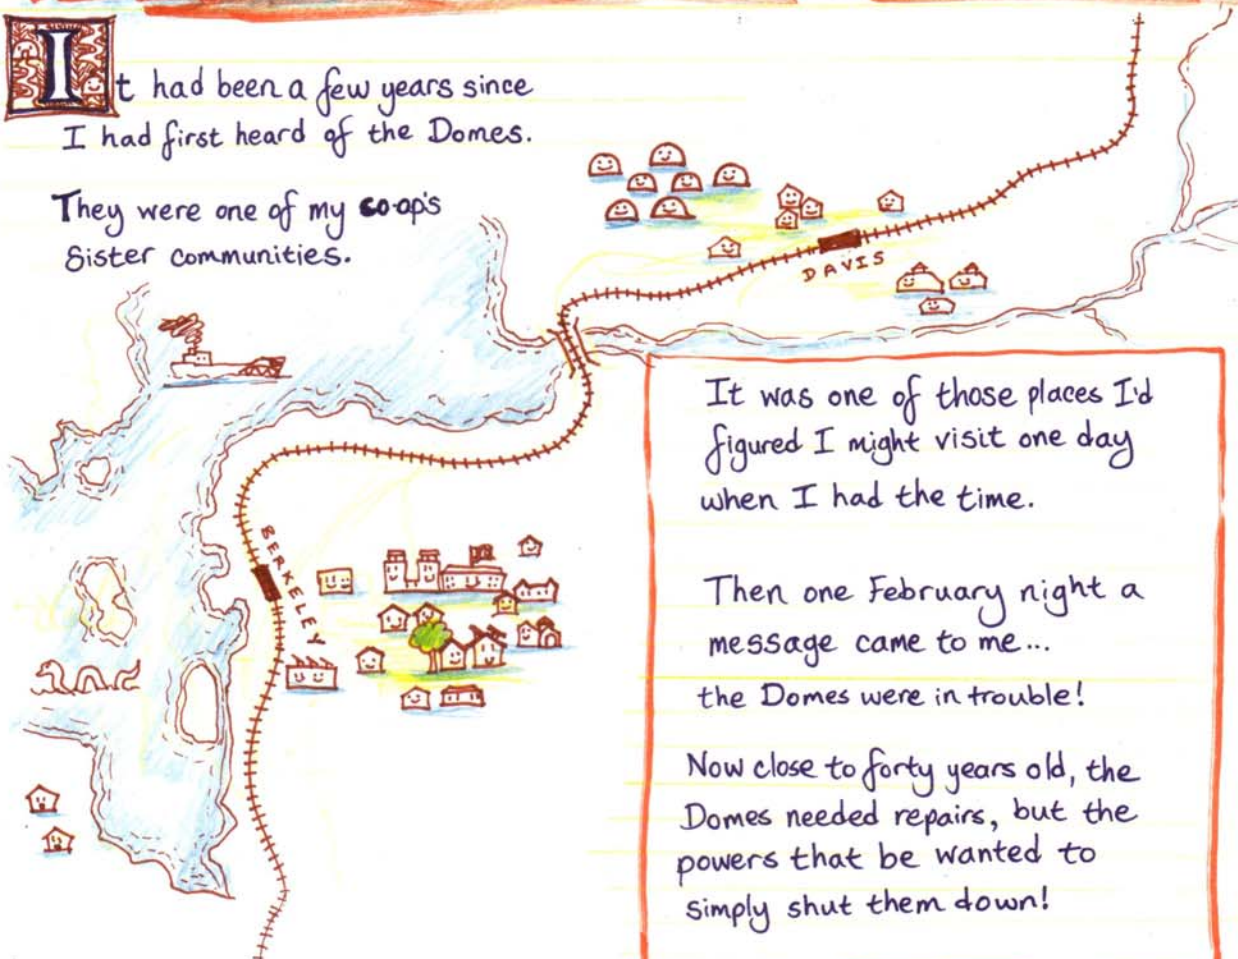 It had been a few years since
I had first heard of the Domes.
They were one of my co-op's
Sister communities.
DAVIS
BERKELEY
It was one of those places I'd
figured I might visit one day
when I had the time.
Then one February night a
message came to me...
the Domes were in trouble!
Now close to forty years old, the
Domes needed repairs, but the
powers that be wanted to
simply shut them down!